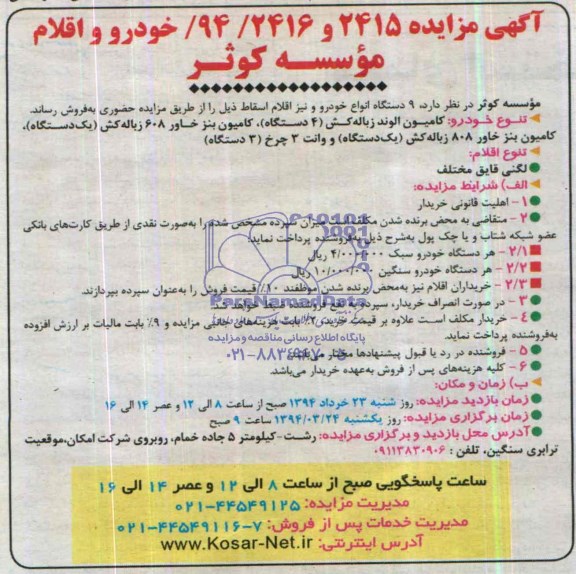 آگهی مزایده ۲۴۱۵ و ۲۴۱۶/ ۹۴/ خودرو و اقلام
مؤسسه کوثر
مؤسسه کوثر در نظر دارد، ۹ دستگاه انواع خودرو و نیز اقلام اسقاط ذیل را از طریق مزایده حضوری به‌فروش رساند.
تنوع خودرو: کامیون الوند زباله‌کش (۴ دستگاه)، کامیون بنز خاور ۶۰۸ زباله‌کش (یک‌دستگاه)،
کامیون بنز خاور ۸۰۸ زباله‌کش (یک‌دستگاه) و وانت ۳ چرخ (۳ دستگاه)
تنوع اقلام:
لگنی قایق مختلف
الف) شرایط مزایده:
۱- اهلیت قانونی خریدار
۲- متقاضی به محض برنده شدن مکلف است میزان سپرده مشخص شده را به‌صورت نقدی از طریق کارت‌های بانکی
عضو شبکه شتاب و یا چک پول به‌شرح ذیل به‌فروشنده پرداخت نماید:
۲/۱- هر دستگاه خودرو سبک ۴/۰۰۰/۰۰۰ ریال
۲/۲- هر دستگاه خودرو سنگین ۱۰/۰۰۰/۰۰۰ ریال
۲/۳- خریداران اقلام نیز به‌محض برنده شدن موظفند ۱۰٪ قیمت فروش را به‌عنوان سپرده بپردازند.
۳- در صورت انصراف خریدار، سپرده به نفع فروشنده ضبط خواهد شد.
۴- خریدار مکلف است علاوه بر قیمت خرید، ۲٪ بابت هزینه‌های جانبی مزایده و ۹٪ بابت مالیات بر ارزش افزوده
به‌فروشنده پرداخت نماید.
۵- فروشنده در رد یا قبول پیشنهادها مختار می‌باشد.
۶- کلیه هزینه‌های پس از فروش به‌عهده خریدار می‌باشد.
ب) زمان و مکان:
زمان بازدید مزایده: روز شنبه ۲۳ خرداد ۱۳۹۴ صبح از ساعت ۸ الی ۱۲ و عصر ۱۴ الی ۱۶
زمان برگزاری مزایده: روز یکشنبه ۱۳۹۴/۰۳/۲۴ ساعت ۹ صبح
آدرس محل بازدید و برگزاری مزایده: رشت-کیلومتر ۵ جاده خمام، روبروی شرکت امکان، موقعیت
ترابری سنگین، تلفن: ۰۹۱۱۳۸۳۰۹۰۶
ساعت پاسخگویی صبح از ساعت ۸ الی ۱۲ و عصر ۱۴ الی ۱۶
مدیریت مزایده: ۴۴۵۴۹۱۲۵-۰۲۱
مدیریت خدمات پس از فروش: ۷-۴۴۵۴۹۱۱۶-۰۲۱
آدرس اینترنتی: www.Kosar-Net.ir
ParsNamadData
پایگاه اطلاع رسانی مناقصه و مزایده